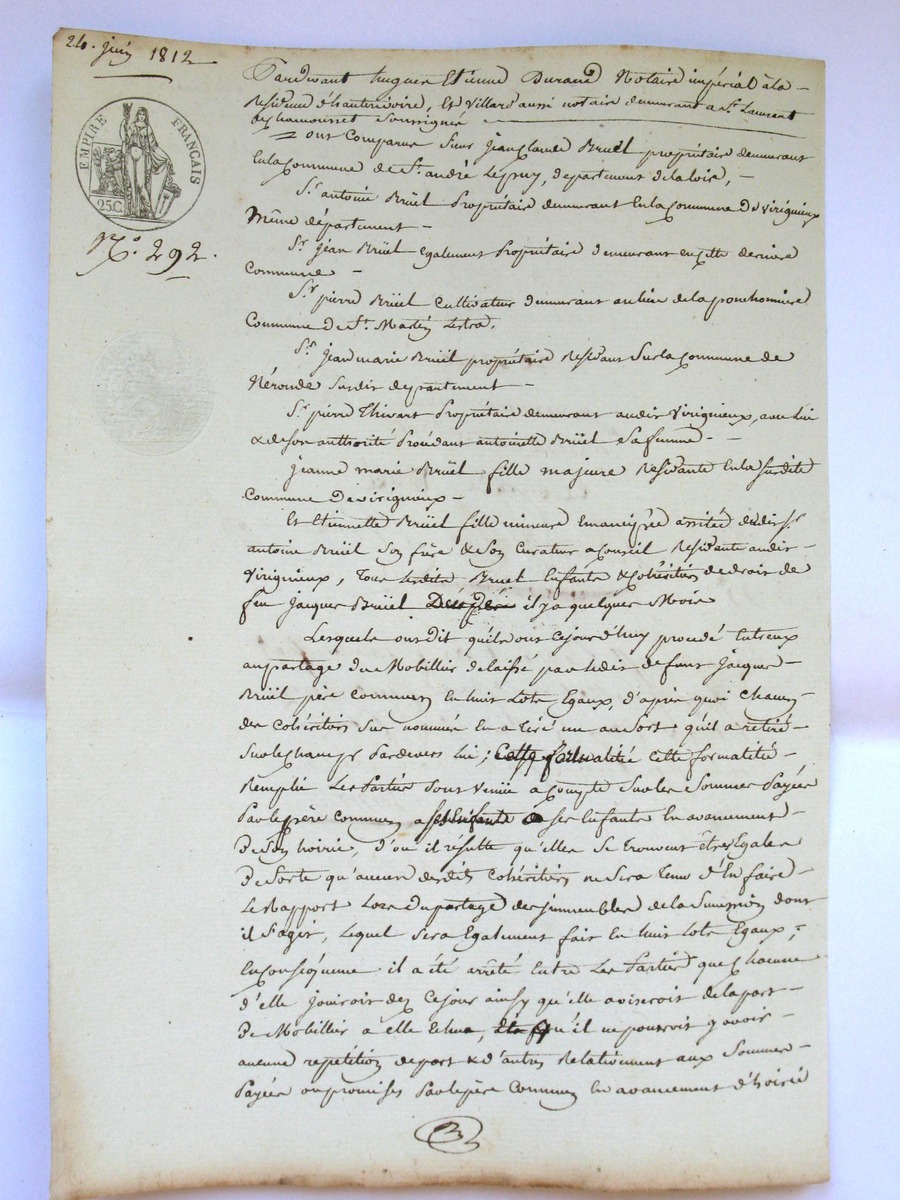 24. juin 1812
EMPIRE FRANÇAIS
25C.
N.° 292.
Pardevant hugues Etienne Durand Notaire impérial à la
Residence d'hauterivoire, Et Villard aussi notaire demeurant a St. Laurent
de chamousset Soussignés
ont Comparus Sieur jean Claude Brüel propriétaire demeurant
En la Commune de St. andré Le puy, departement de la loire,
Sr. antoine Brüel Propriétaire demeurant En la Commune de Virignieux
Même département
Sr. jean Brüel Egalement Propriétaire demeurant en cette derniere
Commune
Sr. pierre Brüel Cultivateur demeurant au lieu de la ponchonniere
Commune de St. Martin Lestra.
Sr. jean marie Brüel propriétaire Residant Sur la Commune de
Néronde Susdit departement
Sr. pierre Thivart Propriétaire demeurant audit Virignieux, avec lui
& de son authorité Procédant antoinette Brüel Sa femme
jeanne marie Brüel fille majeure Residante En la Susdite
Commune de virignieux
Et Etiennette Brüel fille mineure Emancipée assistée dudit Sr.
antoine Brüel Son frère & Son Curateur a Conseil Residante audit
Virignieux, Tous Lesdits Bruel Enfants & Cohéritiers de droit de
feu Jacques Brüel Décédé il y a quelques Mois
Lesquels ont dit qu'ils ont Cejourd'huy procédé Entreux
au partage du Mobillier delaissé par ledit defunt Jacques
Brüel père Commun En huit Lots Egaux, d'après quoi Chacun
des Cohéritiers Sus nommés En a Tiré un au Sort qu'il a retiré
Sur le Champ Pardevers Lui; Cette formalité cette formalité
Remplie Les Parties Sont Venües a Compte Sur les Sommes Payées
Par le père Commun a Ses Enfants a ses Enfants En avancement
De Son hoirie, d'ou il résulte qu'elles Se trouvent êtres Egales
De Sorte qu'aucun desdits Cohéritiers ne Sera Tenu d'En faire
Le Rapport Lors du partage des immeubles de la Succession dont
il S'agit, Lequel Sera Egalement fait En huit Lots Egaux;
En Conséquence il a été arrêté Entre Les Parties que chacune
d'elle jouiroit dez Cejour ainsy qu'elle aviseroit de la part
De Mobillier à elle Echue, qu'il ne pourroit y avoir
aucune repétition de part & d'autres Relativement aux Sommes
Payées ou promises Par le père Commun En avancement d'hoirie